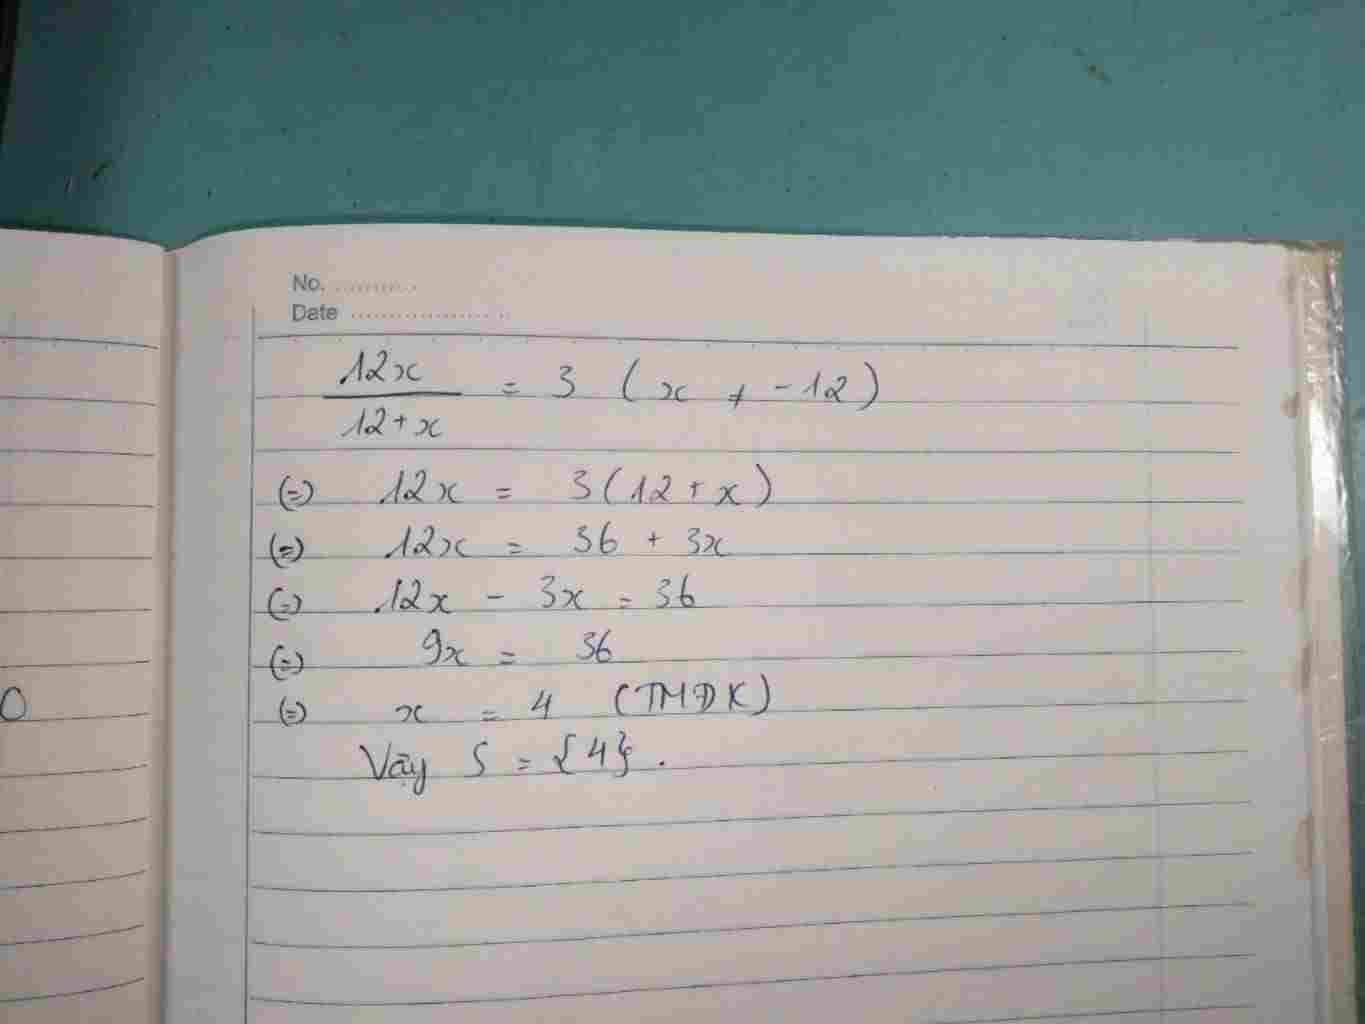 No. ..........
Date ....................
12x / 12 + x = 3 (x ≠ -12)
(=) 12x = 3(12 + x)
(=) 12x = 36 + 3x
(=) 12x - 3x = 36
(=) 9x = 36
(=) x = 4 (TMĐK)
Vậy S = {4}.
0